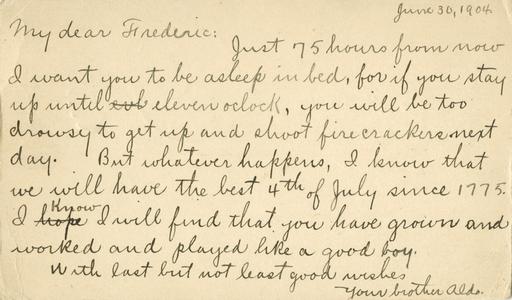 June 30, 1904
My dear Frederic:
Just 75 hours from now
I want you to be asleep in bed, for if you stay
up until eleven oclock, you will be too
drowsy to get up and shoot firecrackers next
day. But whatever happens, I know that
we will have the best 4th of July since 1775
Know
I hope I will find that you have grown and
worked and played like a good boy.
With last but not least good wishes
Your brother Aldo.